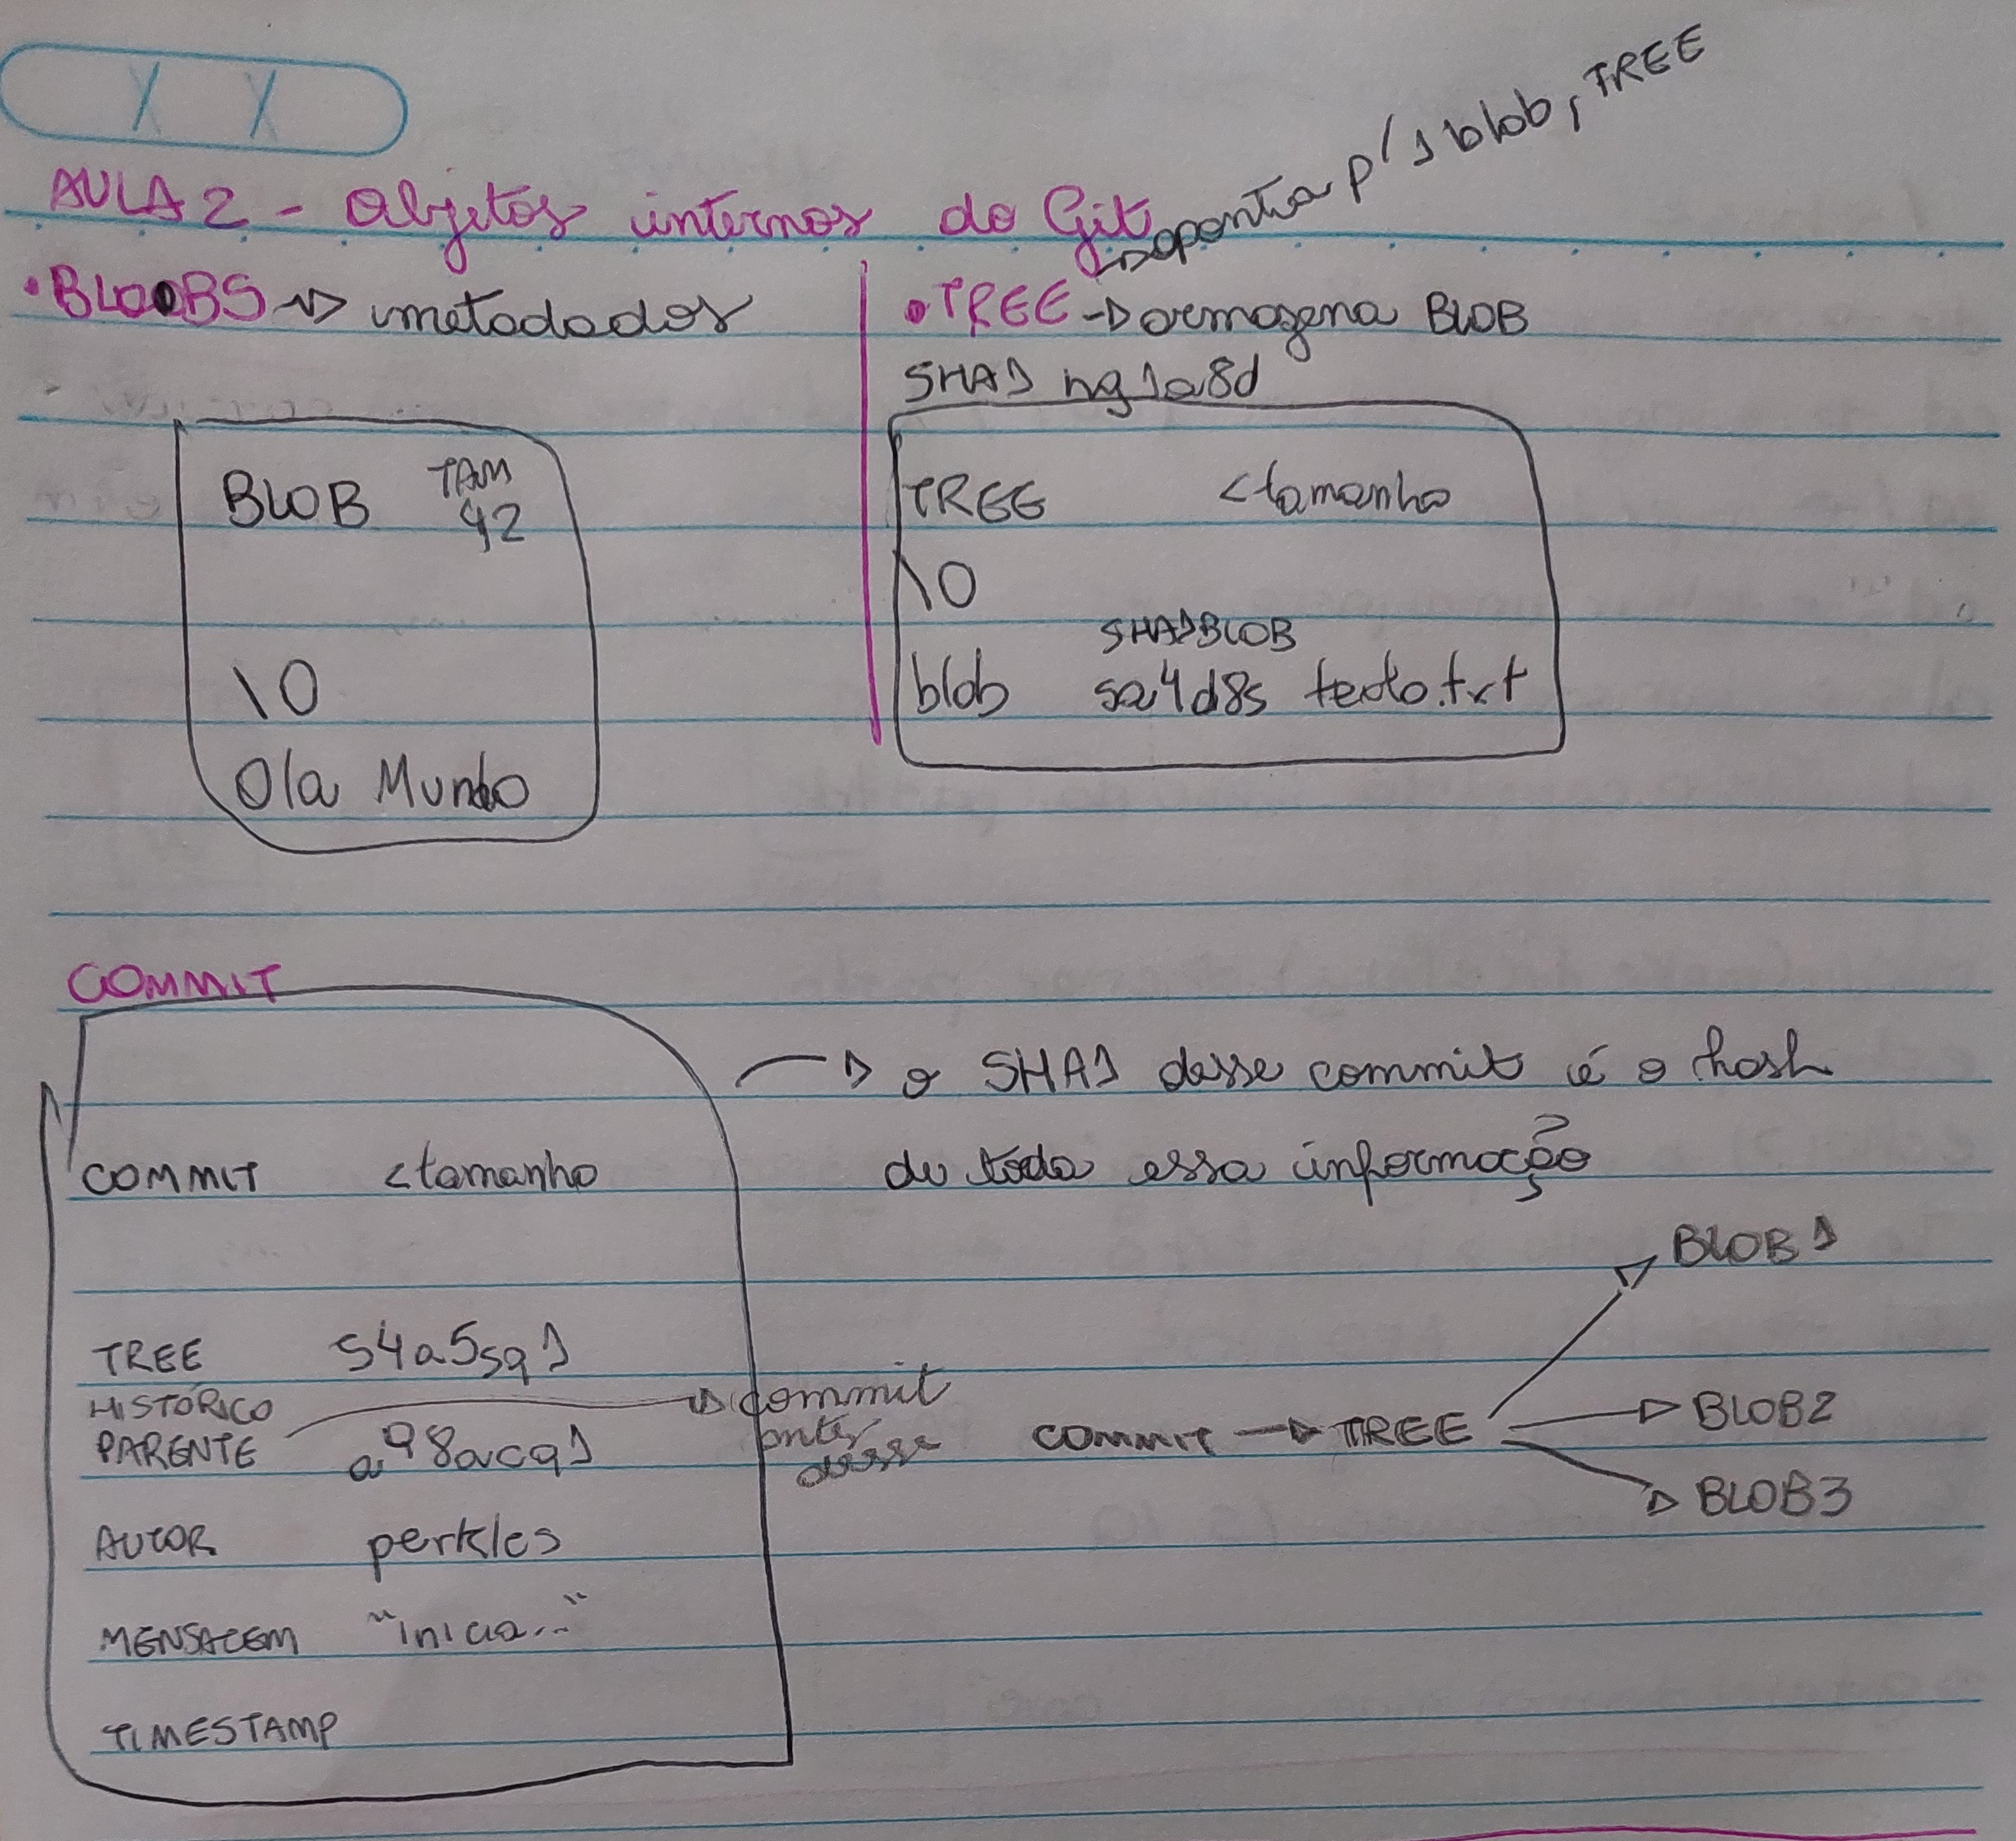 AULA 2 - Objetos internos do Git
↳ aponta p/ 1 blob, TREE
• BLOBS → metadados
BLOB TAM 42
\0
Ola Mundo
• TREE → armazena BLOB
SHA1 ng1a8d
TREE <tamanho
\0
SHA1BLOB
blob sa4d8s texto.txt
COMMIT
COMMIT <tamanho
TREE s4a5sq1
HISTÓRICO
PARENTE a98acq1
→ commit
antes
desse
AUTOR perkles
MENSAGEM "inicia..."
TIMESTAMP
→ o SHA1 desse commit é o hash
de toda essa informação
COMMIT → TREE
→ BLOB1
→ BLOB2
→ BLOB3